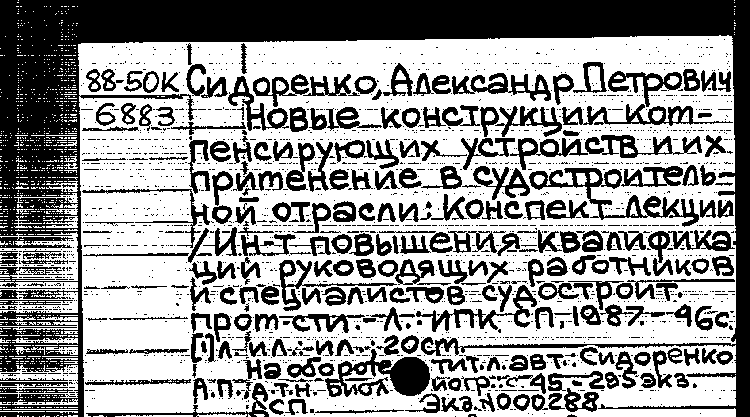 88-50К Сидоренко, Александр Петрович
6883 Новые конструкции ком-
пенсирующих устройств и их
применение в судостроитель-
ной отрасли: Конспект лекций
/Ин-т повышения квалифика-
ции руководящих работников
и специалистов судостроит.
пром-сти. - Л.: ИПК СП, 1987. - 46с,
[1]л. ил.: ил.; 20см.
На обороте тит.л. авт.: Сидоренко
А.П., д.т.н. Библиогр.: с 45. - 295 экз.
ДСП. Экз.N000288.